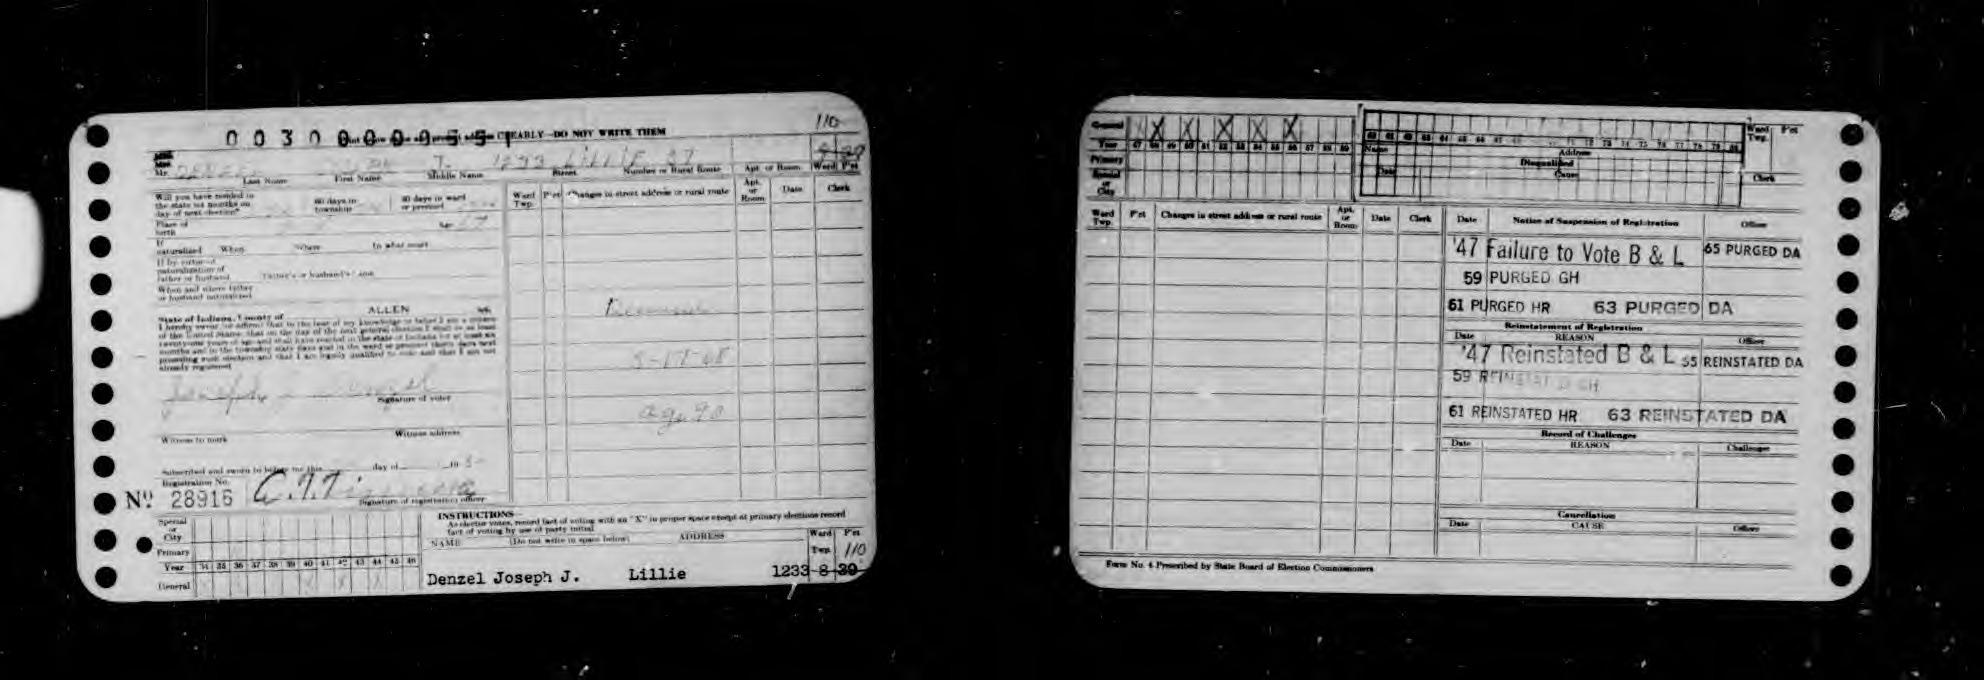 0 0 3 0 0 0 0 0 5 5 1
CLEARLY—DO NOT WRITE THEM
110
Mrs.
Mr. J. 1233 LILLIE ST 8 39
Last Name First Name Middle Name Street Number or Rural Route Apt. or Room Ward P'ct
Will you have resided in the state six months on day of next election? 60 days in township 30 days in ward or precinct
Ward Twp. P'ct Changes in street address or rural route Apt. or Room Date Clerk
Place of birth
If naturalized When Where In what court
If by virtue of naturalization of father or husband Father's or husband's name
When and where father or husband naturalized
Deceased
State of Indiana, County of ALLEN ss.
I hereby swear, or affirm that to the best of my knowledge or belief I am a citizen
of the United States; that on the day of the next general election I shall be at least
twenty-one years of age and shall have resided in the state of Indiana for at least six
months and in the township sixty days and in the ward or precinct thirty days next
preceding such election and that I am legally qualified to vote and that I am not
already registered
age 90
Joseph Denzel
Signature of voter
Witness to mark Witness address
Subscribed and sworn to before me this day of 19
Registration No.
No. 28916
Signature of registration officer
Special or City
Primary
Year 34 35 36 37 38 39 40 41 42 43 44 45 46
General X X X
INSTRUCTIONS—
As elector votes, record fact of voting with an "X" in proper space except at primary elections record
fact of voting by use of party initial
NAME (Do not write in space below) ADDRESS Ward Twp. P'ct
110
Denzel Joseph J. Lillie 1233 8 39
General X X X X X
Year 47 48 49 50 51 52 53 54 55 56 57 58 59
Primary
Special or City
60 61 62 63 64 65 66 67 68 69 70 71 72 73 74 75 76 77 78 79 80
Ward Twp. P'ct
Name Address
Disqualified
Date Cause Clerk
Ward Twp. P'ct Changes in street address or rural route Apt. or Room Date Clerk
Date Notice of Suspension of Registration Officer
'47 Failure to Vote B & L 65 PURGED DA
59 PURGED GH
61 PURGED HR 63 PURGED DA
Reinstatement of Registration
Date REASON Officer
'47 Reinstated B & L 55 REINSTATED DA
59 REINSTATED GH
61 REINSTATED HR 63 REINSTATED DA
Record of Challenges
Date REASON Challenger
Cancellation
Date CAUSE Officer
Form No. 4 Prescribed by State Board of Election Commissioners